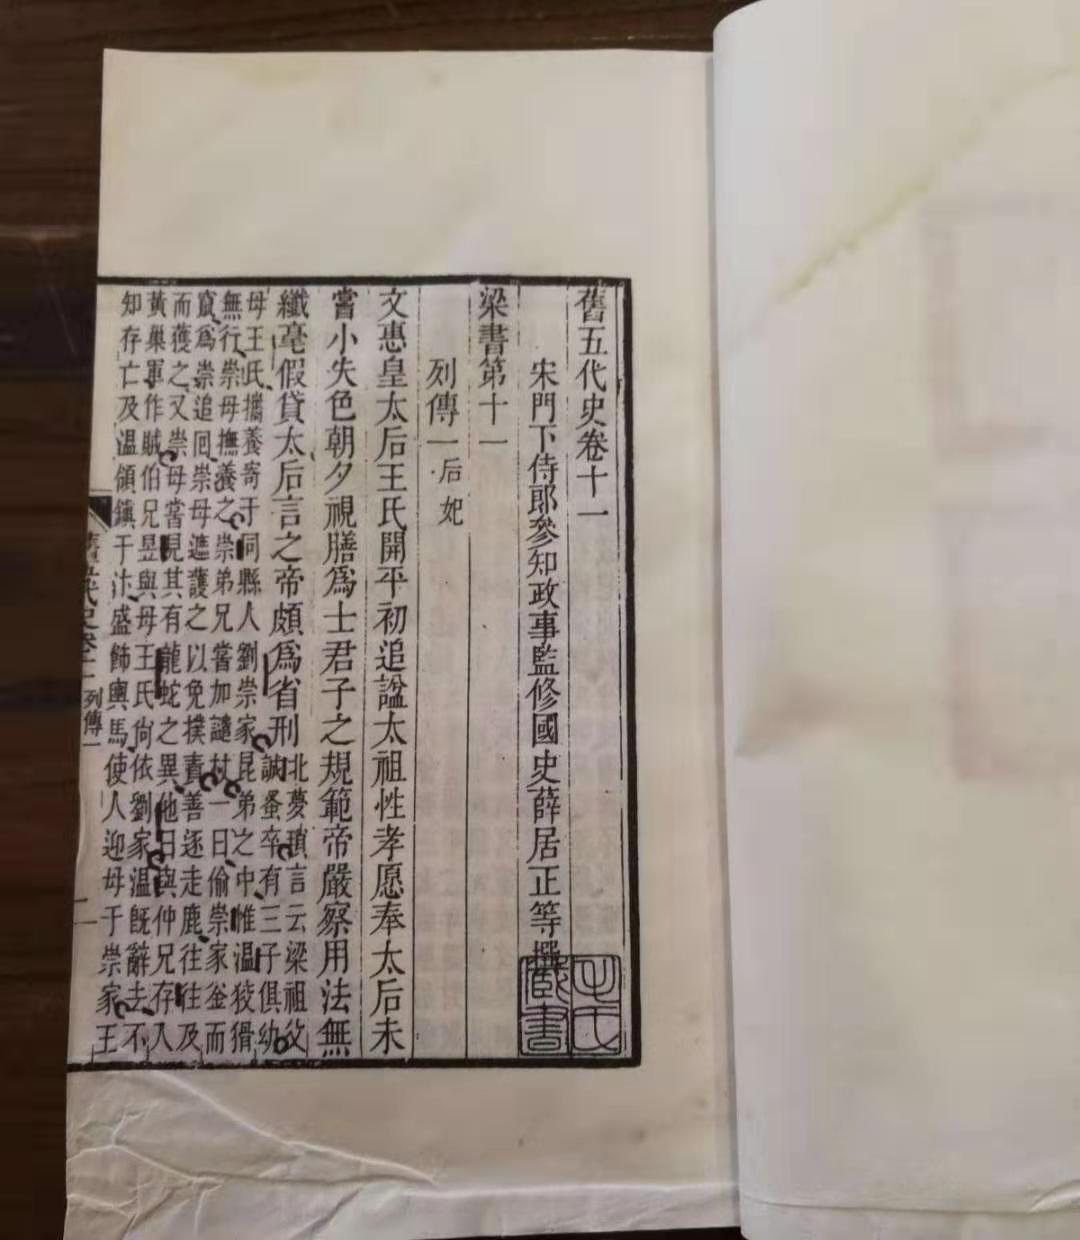 舊五代史卷十一
宋門下侍郎參知政事監修國史薛居正等撰
梁書第十一
列傳一 后妃
文惠皇太后王氏開平初追諡太祖性孝愿奉太后未
嘗小失色朝夕視膳爲士君子之規範帝嚴察用法無
纖毫假貸太后言之帝頗爲省刑
北夢瑣言云梁祖父
誠蚤卒有三子俱幼
母王氏攜養寄于同縣人劉崇家昆弟之中惟温狡猾
無行崇母撫養之崇弟兄嘗加譴杖一日偷崇家釜而
竄爲崇追回崇母遮護之以免撲責善逐走鹿往往及
而獲之又崇母嘗見其有龍蛇之異他日與仲兄存入
黃巢軍作賊伯兄昱與母王氏尚依劉家温旣辭去不
知存亡及温領鎮于汴盛飾輿馬使人迎母于崇家王
舊五代史卷十一 列傳一
一
毛氏
藏書